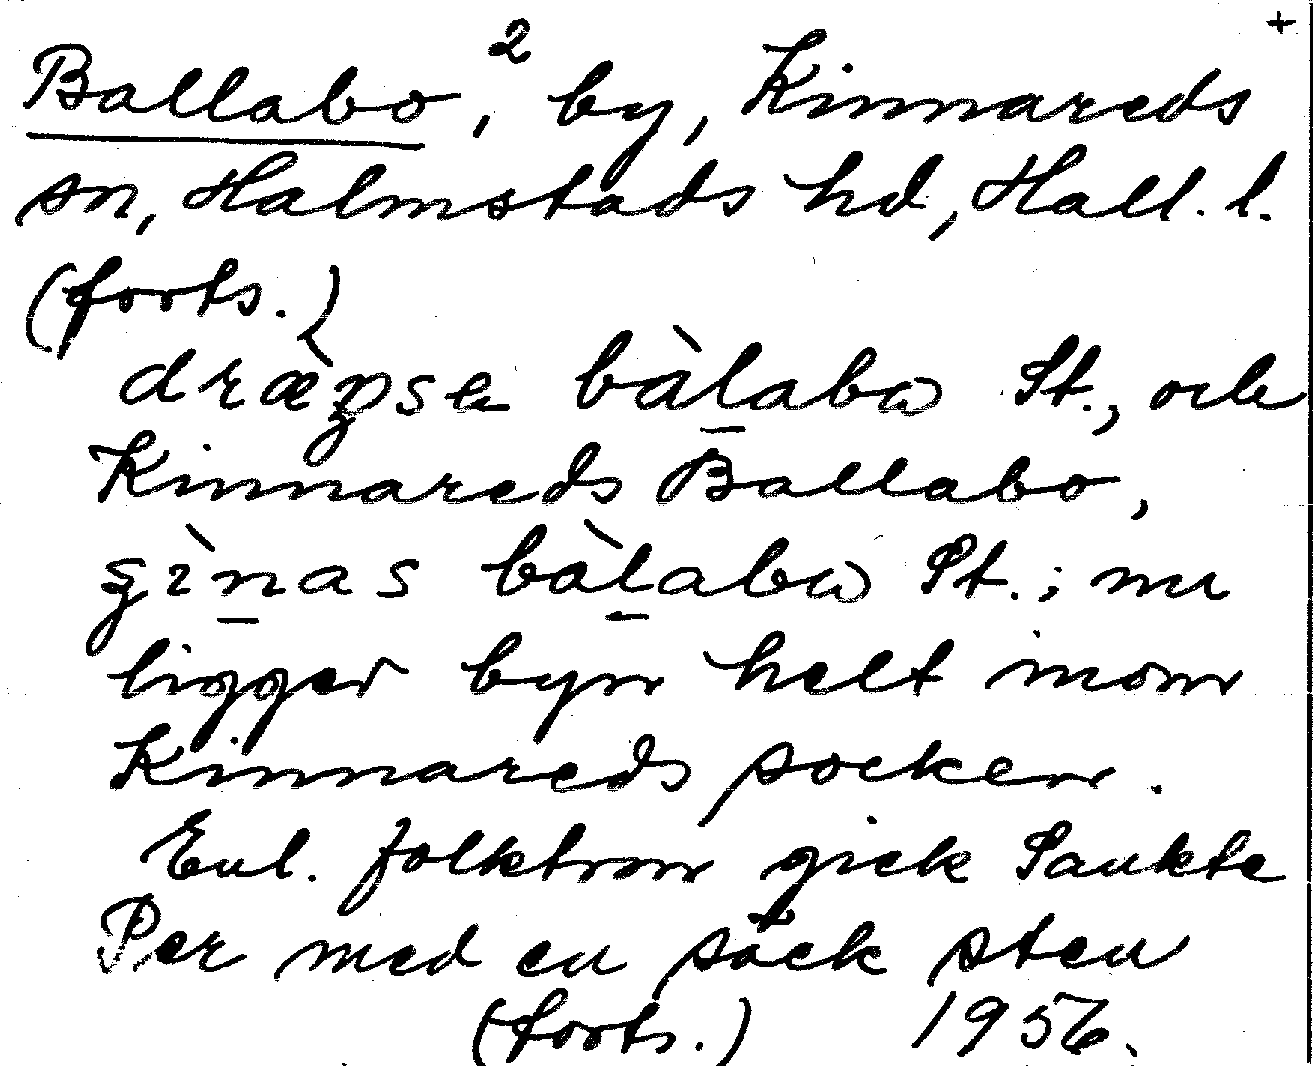 +
Ballabo,² by, Kinnareds
sn, Halmstads hd, Hall. l.
(forts.)
bàlabω St., och
Kinnareds Ballabo,
bàlabω St.; nu
ligger byn helt inom
Kinnareds socken.
Enl. folktron gick Sankte
Per med en säck sten
(forts.) 1956.